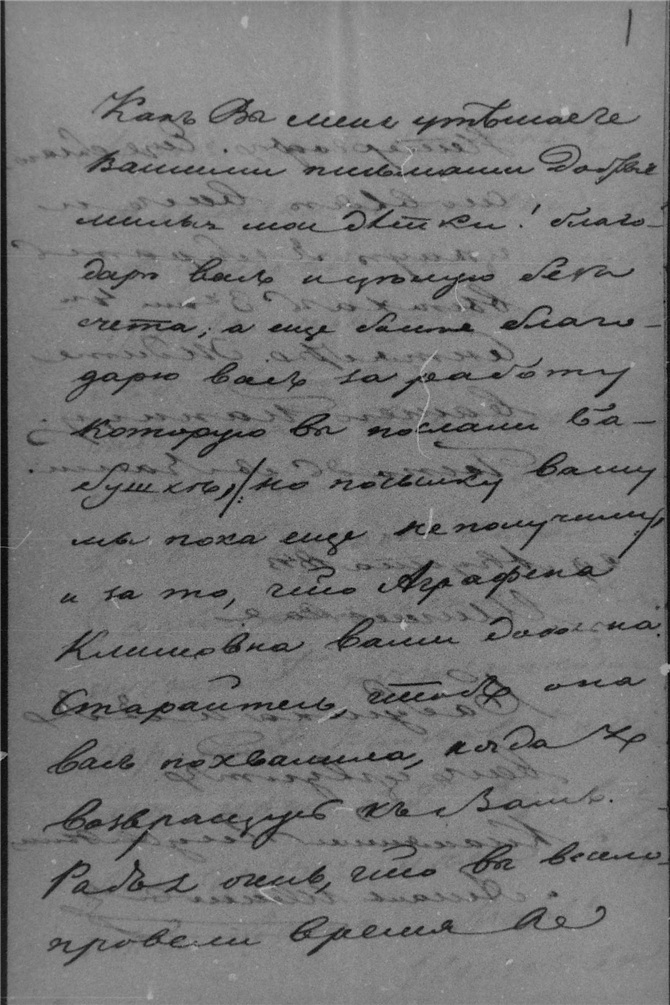 1
Какъ Вы меня утѣшаете
вашими письмами Добрые
милые мои дѣтки! благо-
дарю васъ и цѣлую безъ
счета; а еще более благо-
дарю васъ за работу
которую вы послали Ба-
бушкѣ, /: но посылку вашу
мы пока еще не получили :/
и за то, что Аграфена
Климовна вами довольна.
Старайтесь, чтобъ она
васъ похвалила, когда я
возвращусь къ Вамъ.
Радъ очень, что вы весело
провели время въ